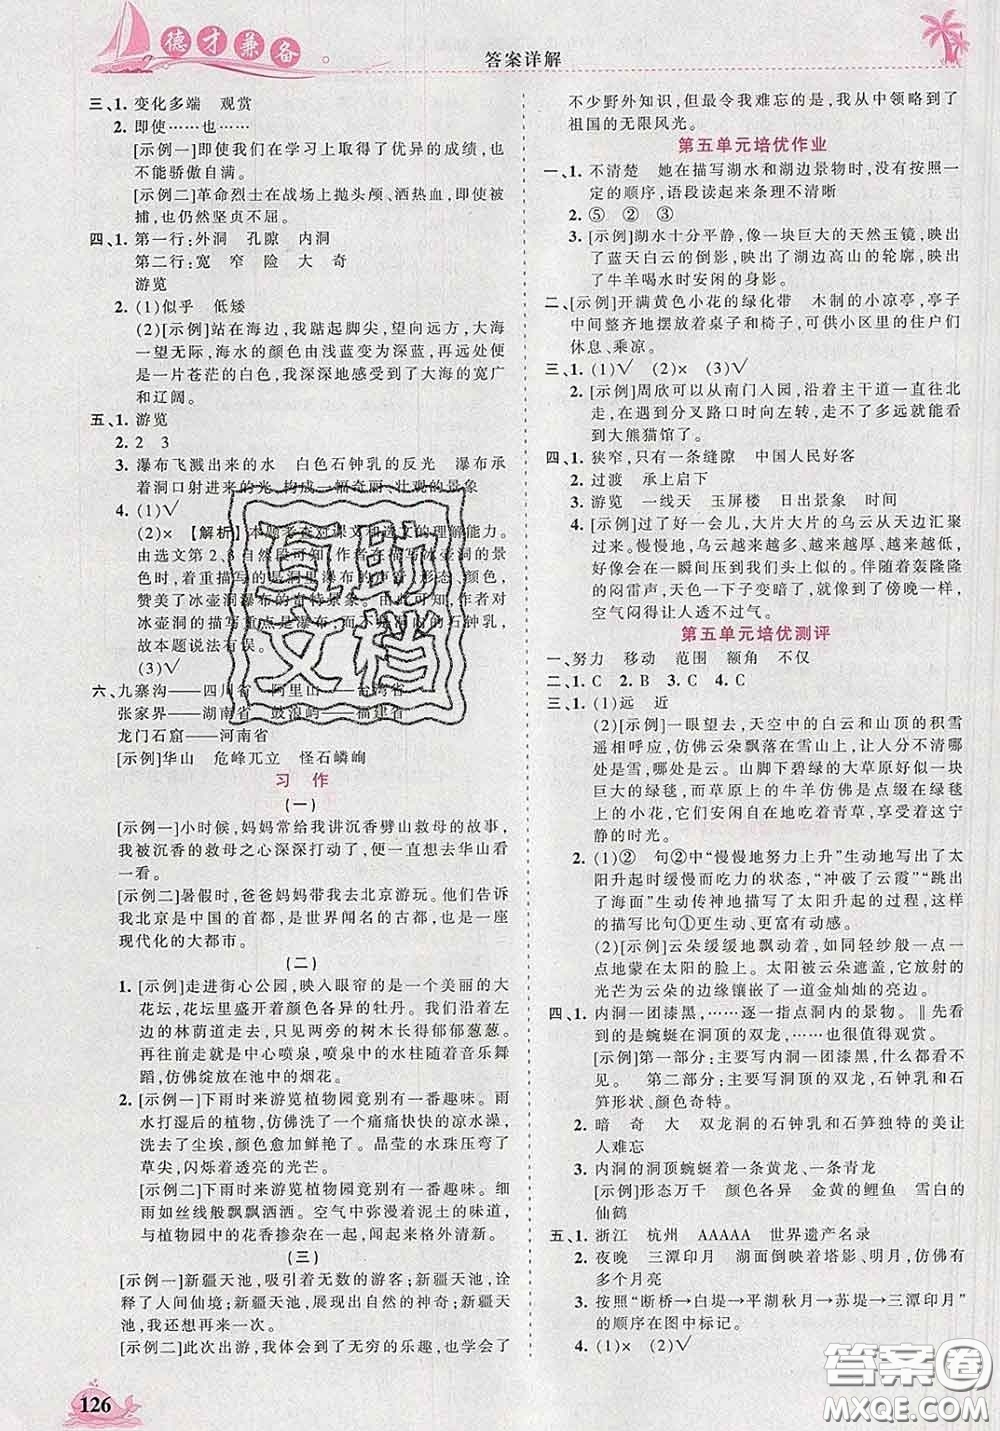 德才兼备
答案详解
三、1. 变化多端　观赏
2. 即使……也……
[示例一]即使我们在学习上取得了优异的成绩,也不
能骄傲自满。
[示例二]革命烈士在战场上抛头颅、洒热血,即使被
捕,也仍然坚贞不屈。
四、1. 第一行:外洞　孔隙　内洞
第二行:宽　窄　险　大　奇
游览
2. (1)似乎　低矮
(2)[示例]站在海边,我踮起脚尖,望向远方,大海
一望无际,海水的颜色由浅蓝变为深蓝,再远处就
是一片苍茫的白色,我深深地感受到了大海的宽广
和辽阔。
五、1. 游览
2. 2　3
3. 瀑布飞溅出来的水　白色石钟乳的反光　瀑布承
着洞口射进来的光,构成一幅奇丽、壮观的景象
4. (1)√
(2)×　【解析】本题考查对课文和选文的理解能力。
由选文第2、3自然段可知,作者在描写冰壶洞的景
色时,着重描写的是洞里瀑布的声音、形态、颜色,
赞美了冰壶洞瀑布的奇特景象。由此可知,作者对
冰壶洞的描写重点是瀑布,而不是洞里的石钟乳,
故本题说法有误。
(3)√
六、九寨沟——四川省　阿里山——台湾省
张家界——湖南省　鼓浪屿——福建省
龙门石窟——河南省
[示例]华山　危峰兀立　怪石嶙峋
习　作
(一)
[示例一]小时候,妈妈常给我讲沉香劈山救母的故事,
我被沉香的救母之心深深打动了,便一直想去华山看
一看。
[示例二]暑假时,爸爸妈妈带我去北京游玩。他们告诉
我北京是中国的首都,是世界闻名的古都,也是一座
现代化的大都市。
(二)
1. [示例]走进街心公园,映入眼帘的是一个美丽的大
花坛,花坛里盛开着颜色各异的牡丹。我们沿着左
边的林荫道走去,只见两旁的树木长得郁郁葱葱。
再往前走就是中心喷泉,喷泉的水柱随着音乐舞
蹈,仿佛绽放在池中的烟花。
2. [示例一]下雨时来游览植物园竟别有一番趣味。雨
水打湿后的植物,仿佛洗了一个痛痛快快的凉水澡,
洗去了尘埃,颜色愈加鲜艳了。晶莹的水珠压弯了
草尖,闪烁着透亮的光芒。
[示例二]下雨时来游览植物园竟别有一番趣味。细
雨如丝线般飘飘洒洒。空气中弥漫着泥土的味道,
与植物园中的花香掺杂在一起,闻起来使人神清气新。
(三)
[示例一]新疆天池,吸引着无数的游客;新疆天池,诠
释了人间仙境;新疆天池,展现出自然的神奇;新疆天
池,我还想再来一次。
[示例二]此次出游,我们不仅感受了无穷的乐趣,也学会了
不少野外知识,但最令我难忘的是,我从中领略到了
祖国的无限风光。
第五单元培优作业
一、1. 不清楚　她在描写湖水和湖边景物时,没有按照一
定的顺序,语段读起来条理不清晰
2. ⑤　②　③
3. [示例]湖水十分平静,像一块巨大的天然玉镜,映出
了蓝天白云的倒影,映出了湖边高山的轮廓,映出
了牛羊喝水时安闲的身影。
二、[示例]开满黄色小花的绿化带　木制的小凉亭,亭子
中间整齐地摆放着桌子和椅子,可供小区里的住户们
休息、乘凉。
三、1. (1)√　(2)×　(3)√
2. [示例]周欣可以从南门入园,沿着主干道一直往北
走,在遇到分叉路口时向左转,走不了多远就能看
到大熊猫馆了。
四、1. 狭窄,只有一条缝隙　中国人民好客
2. 过渡　承上启下
3. 游览　一线天　玉屏楼　日出景象　时间
4. [示例]过了好一会儿,大片大片的乌云从天边汇聚
过来。慢慢地,乌云越来越多、越来越厚、越来越低,
好像会在一瞬间压到我们头上似的。伴随着轰隆隆
的闷雷声,天色一下子变暗了,就像到了傍晚一样,
空气闷得让人透不过气。
第五单元培优测评
一、努力　移动　范围　额角　不仅
二、1. C　2. B　3. C　4. C
三、1. (1)远　近
(2)[示例]一眼望去,天空中的白云和山顶的积雪
遥相呼应,仿佛云朵飘落在雪山上,让人分不清哪
里是雪,哪里是云。山脚下碧绿的大草原好像一块
巨大的绿毯,而草原上的牛羊仿佛是点缀在绿毯
上的小花,它们安闲自在地吃着青草,享受着这宁
静的时光。
2. (1)②　句②中“慢慢地努力上升”生动地写出了太
阳升起时缓慢吃力的状态,“冲破了云霞”“跳出了
海面”生动传神地描写了太阳升起的过程,这样
的描写比句①更生动、更富有动感。
(2)[示例]云朵缓缓地飘动着,如同轻纱般一点一
点地蒙在太阳的脸上。太阳被云朵遮盖,它发出的
光芒在云朵的边缘镶嵌了一道金灿灿的亮边。
四、1. 内洞一团漆黑,……逐一指点洞内的景物。‖先看
到的是蜿蜒在洞顶的双龙,……也很值得观赏。
[示例]第一部分:主要写内洞一团漆黑,什么都看不
见。　第二部分:主要写洞顶的双龙,石钟乳和石
笋形状、颜色奇特。
2. 暗　奇　大　双龙洞的石钟乳和石笋独特的美让
人难忘
3. 内洞的洞顶蜿蜒着一条黄龙、一条青龙
[示例]形态万千　颜色各异　金黄的鲤鱼　雪白的
仙鹤
五、1. 浙江　杭州　AAAAA　世界遗产名录
2. 夜晚　三潭印月　湖面倒映着塔影、明月,仿佛有
多个月亮
3. 按照“断桥→白堤→平湖秋月→苏堤→三潭印月”
的顺序在图中标记。
4. (1)×　(2)√
直聊文档
126
答案圈
MXQE.COM